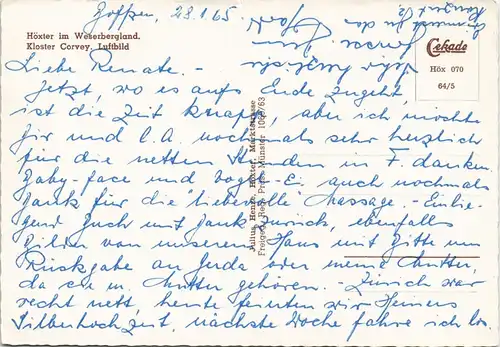 28.1.65
Höxter im Weserbergland,
Kloster Corvey, Luftbild
Cekade
Höx 070
64/5
Liebe Renate. -
Jetzt, wo es aufs Ende zugeht
ist die Zeit knapp, aber ich möchte
Dir und nochmals sehr herzlich
für die netten Stunden in F. danken.
Baby-face und auch nochmals
Dank für die "liebevolle" Massage. - Einlie-
gend Buch mit Dank zurück, ebenfalls
Bilder von unserem Haus mit Bitte um
Rückgabe an Gerda oder meine Mutter,
da sie m. Mutter gehören. - Zürich war
recht nett, heute feierten wir Heiners
Silberhochzeit, nächste Woche fahre ich los.
Julius Henze, Höxter, Marktstrasse
Freigeg. Reg. Präs. Münster